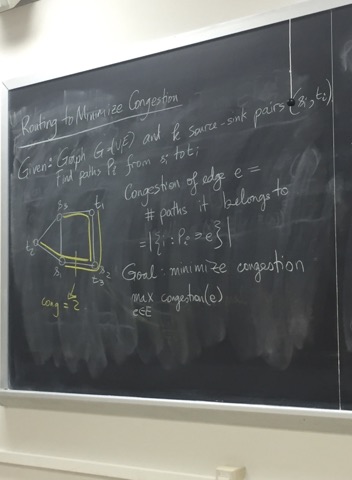 Routing to Minimize Congestion
Given: Graph G=(V,E) and k source-sink pairs (si, ti)
Find paths Pi from si to ti
Congestion of edge e =
# paths it belongs to
= |{i : Pi ∋ e}|
Goal: minimize congestion
max congestion(e)
e∈E
s3 t1
t2
s1 s2
t3
cong = 2